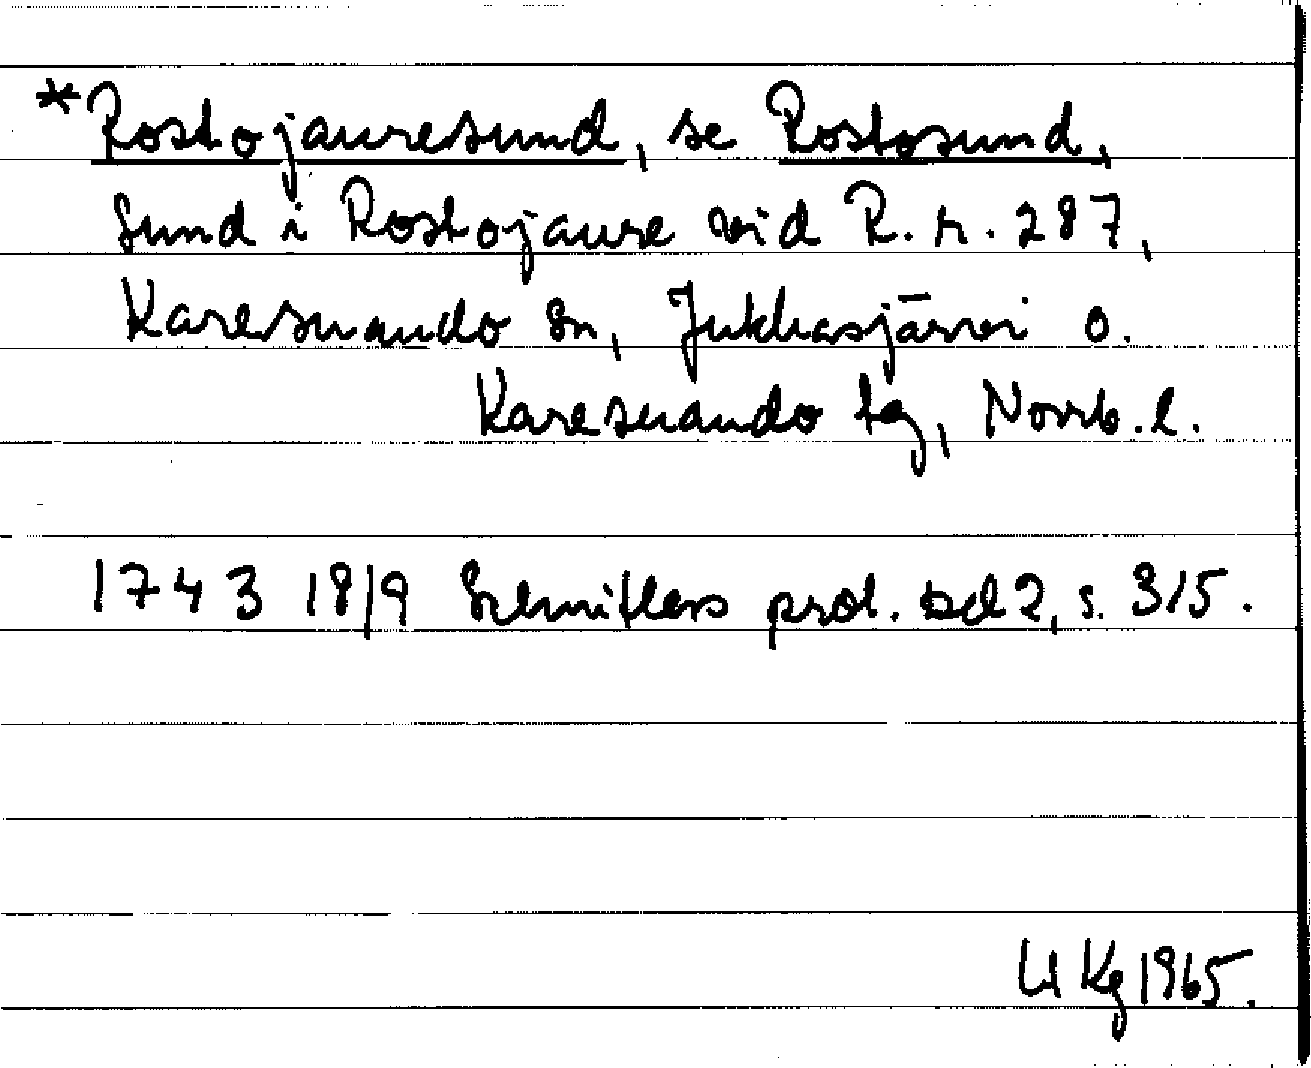 *Rostojauresund, se Rostosund,
Sund i Rostojaure vid R. r. 287,
Karesuando sn, Jukkasjärvi o.
Karesuando tg, Norrb. l.
1743 18/9 Schnitlers prot. bd 2, s. 315.
U Kg 1965.